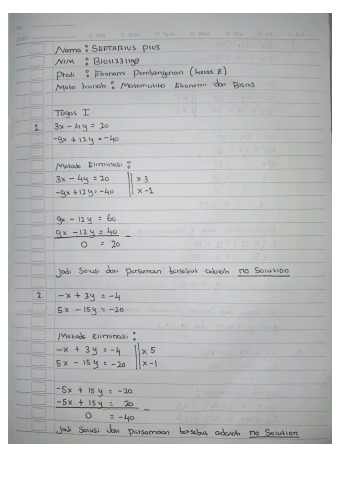 Nama : SEPTARIUS PIUS
NIM : B1011231198
Prodi : Ekonomi Pembangunan (kelas E)
Mata kuliah : Matematika Ekonomi dan Bisnis
Tugas I
1. 3x - 4y = 20
-9x + 12y = -40
Metode Eliminasi :
3x - 4y = 20 || x 3
-9x + 12y = -40 || x -1
9x - 12y = 60
9x - 12y = 40 -
0 = 20
Jadi Solusi dari Persamaan tersebut adalah no Solution
2. -x + 3y = -4
5x - 15y = -20
Metode eliminasi :
-x + 3y = -4 || x 5
5x - 15y = -20 || x -1
-5x + 15y = -20
-5x + 15y = 20 -
0 = -40
Jadi Solusi dari Persamaan tersebut adalah no Solution